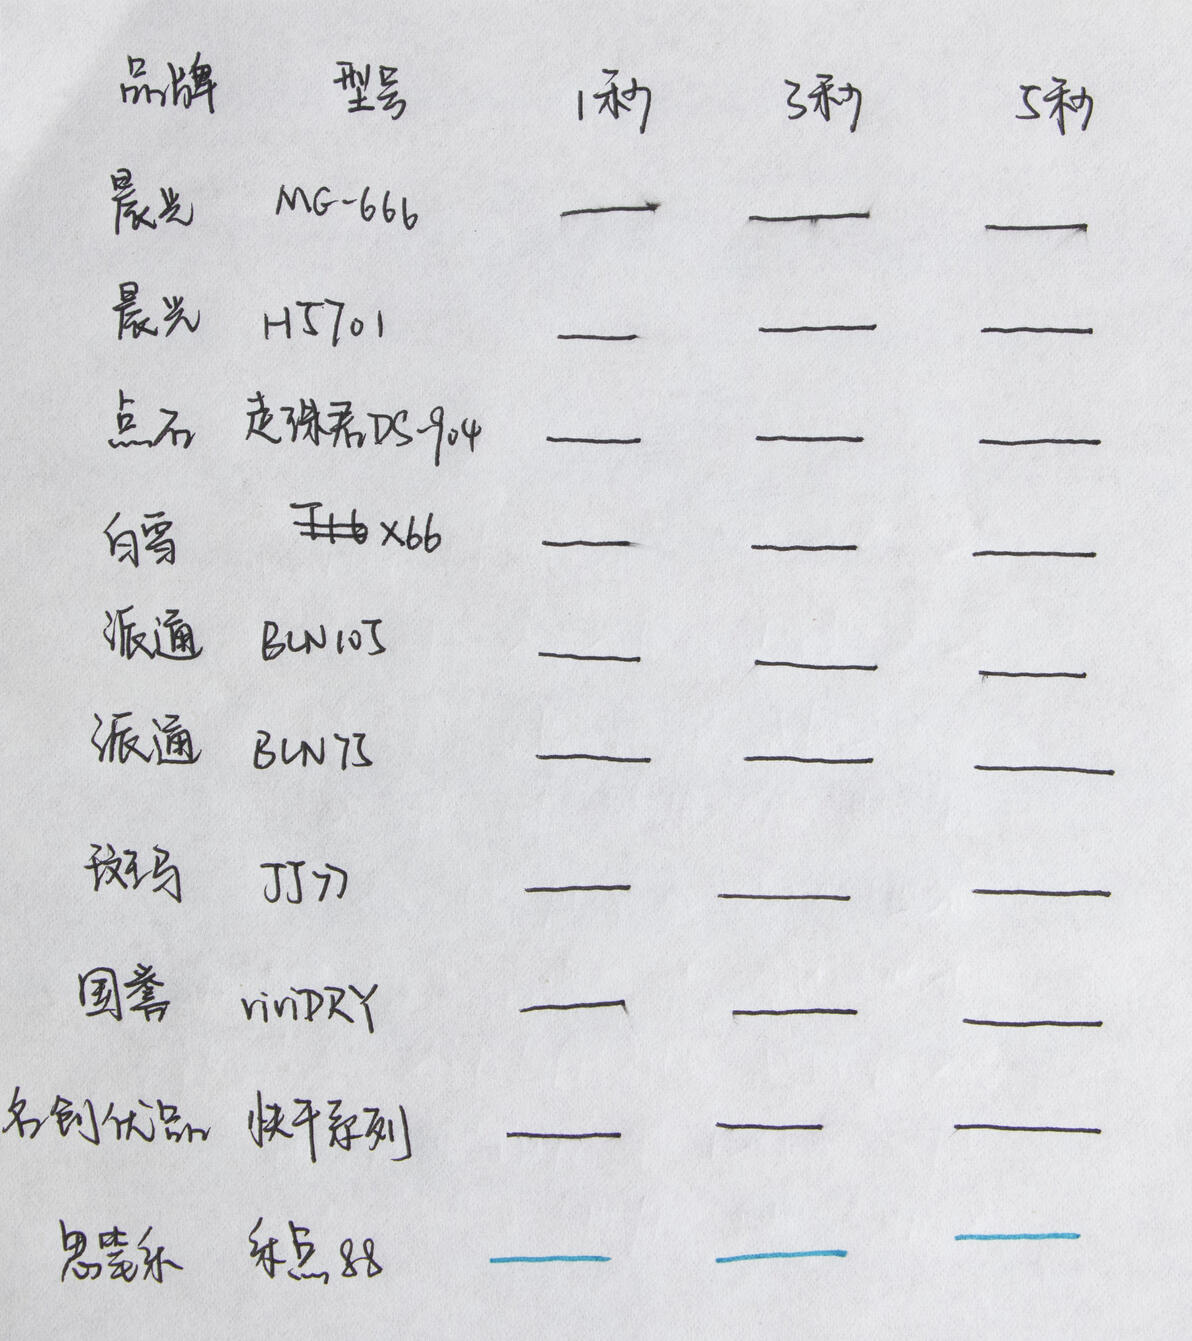 品牌 型号 1秒 3秒 5秒
晨光 MG-666
晨光 H5701
点石 走珠君DS-904
白雪 X66
派通 BLN105
派通 BLN75
斑马 JJ77
国誉 ViViDRY
名创优品 快干系列
思笔乐 88